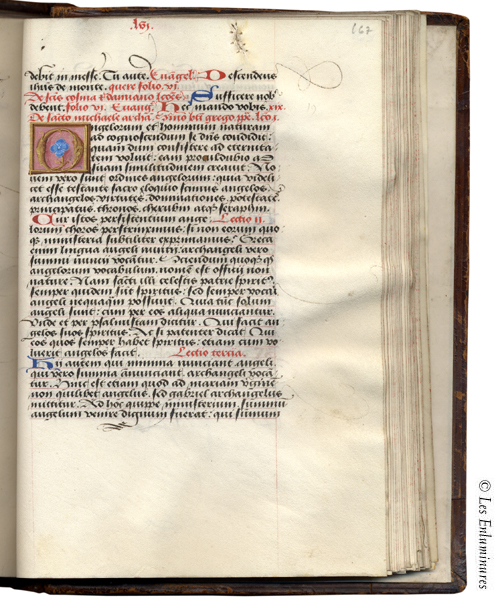 lvi.
167
debit in messe. Tu aute. Euāgel. Descendens
ihūs de monte. quere folio. vi.
De scis cosma et damiano lcōes. Sufficere nob
debent. folio. vi. Euang. Hec mando vobis. xix.
De sācto michaele archā.
Angelorum et hominum naturam
ad cognoscendum se deus condidit:
quam dum consistere ad eternita
tem voluit: eam proculdubio ad
suam similitudinem creauit. No
uem vero sunt ordines angelorum: quia videli
cet esse testante sacro eloquio scimus angelos.
archangelos. virtutes. dominationes. potestates.
principatus. thronos. cherubin atqz seraphin.
Cur istos persistentium ange Lectio ii.
lorum choros perstrinximus: si non eorum quo
qz ministeria subtiliter exprimamus? Greca
enim lingua angeli nuncij. archangeli vero
summi nuncij vocātur. Et sciendum quoqz qz
angelorum vocabulum. nomē est officij non
nature. Nam sācti illi celestis patrie spirit9
semper quidem sūt spiritus: sed semper vocari
angeli nequaqm possunt. Quia tūc solum
angeli sunt: cum per eos aliqua nunciantur.
Vnde et per psalmistam dicitur. Qui facit an
gelos suos spiritus. Ac si patenter dicat. Qui
eos quos semper habet spiritus: etiam cum vo
luerit angelos facit. Lectio tercia.
Hij autem qui minima nunciant angeli:
qui vero summa anunciant. archangeli vocā
tur. Hinc est etiam quod ad mariam virginē
non quilibet angelus. sed gabriel archangelus
mittitur. Ad hoc quippe ministerium summū
angelum venire dignum fuerat: qui summum
© Les Enluminures